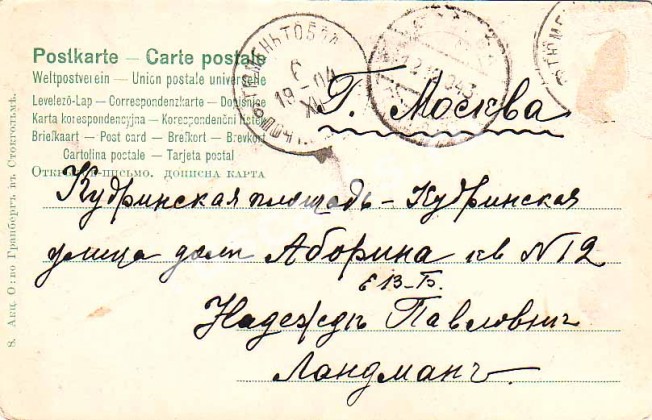 Postkarte — Carte postale
Weltpostverein — Union postale universelle
Levelező-Lap — Correspondenzkarte — Dopisnice
Karta korespondencyjna — Korespondenční lístek
Briefkaart — Post card — Brefkort — Brevkort
Cartolina postale — Tarjeta postal
ОТКРЫТОЕ-ПИСЬМО. ДОПИСНА КАРТА
Г. Москва
Кудринская площадь - Кудринская
улица домъ Аборина кв N 12
Е В-Б.
Надеждѣ Павловнѣ
Ландманъ.
8. Акц. О:во Гранбергъ въ Стокгольмѣ.
6
19-04
XII